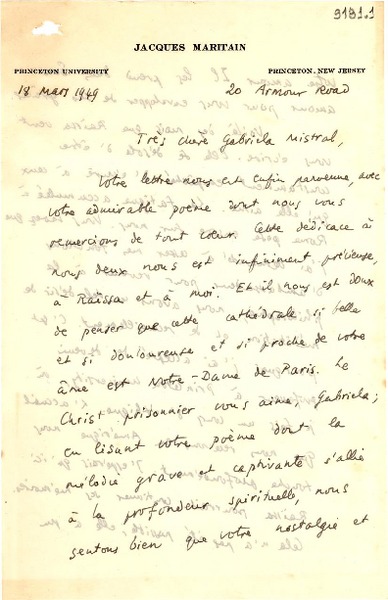 9191.1
JACQUES MARITAIN
PRINCETON UNIVERSITY PRINCETON, NEW JERSEY
18 Mars 1949 20 Armour Road
Très chère Gabriela Mistral,
Votre lettre nous est enfin parvenue, avec
votre admirable poème dont nous vous
remercions de tout cœur. Cette dédicace à
nous deux nous est infiniment précieuse,
à Raïssa et à moi. Et il nous est doux
de penser que cette cathédrale si belle
et si douloureuse et si proche de votre
âme est Notre-Dame de Paris. Le
Christ prisonnier vous aime, Gabriela;
en lisant votre poème dont la
mélodie grave et captivante s'allie
à la profondeur spirituelle, nous
sentons bien que votre nostalgie et